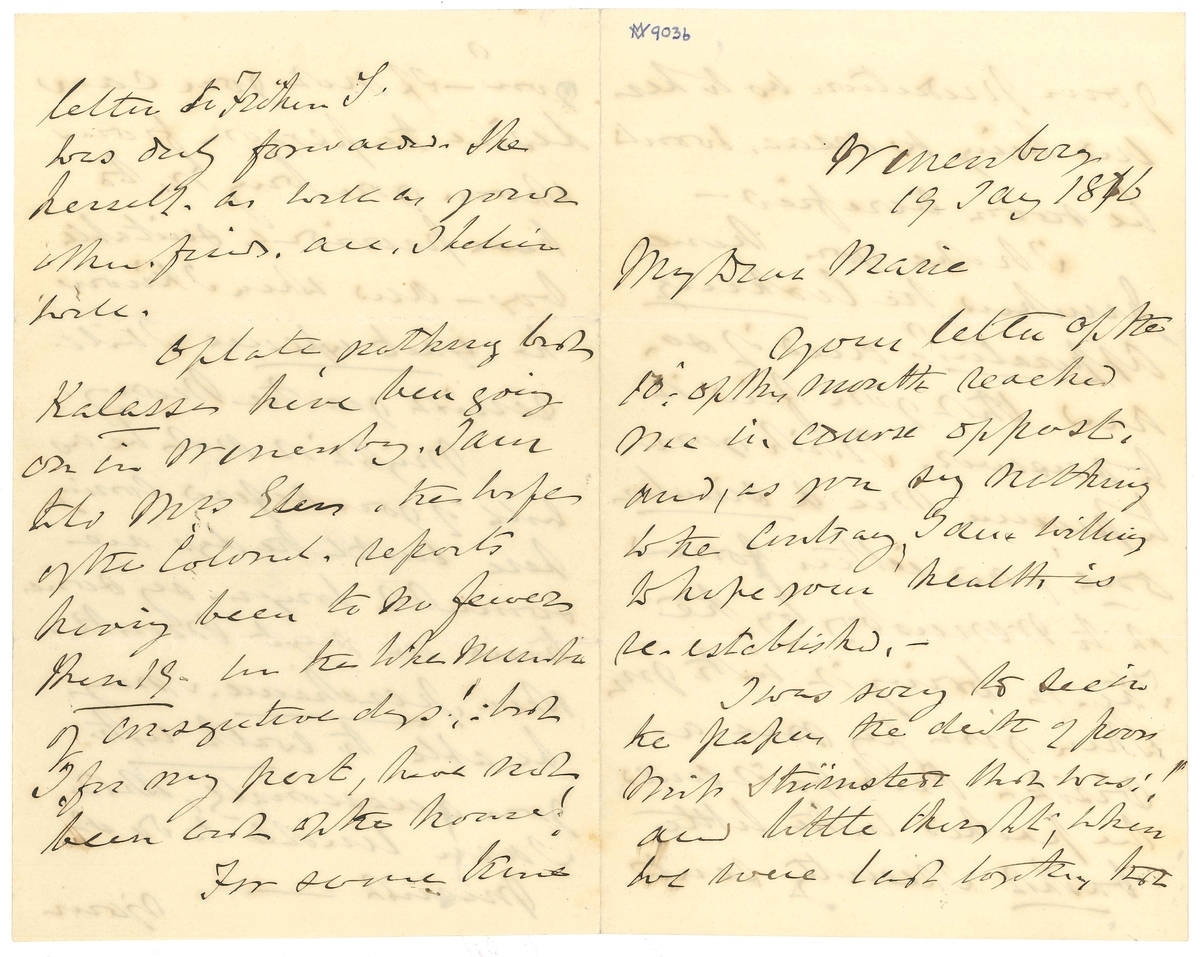 9036
Wenersborg
19 Jany 1876
My Dear Marie
Your letter of the
13th of this month reached
me in course of post,
and, as you say nothing
to the contrary, I am willing
to hope your health is
re-established. –
I was sorry to see in
the papers the death of poor
Miss Strömstedt that was!"
and little thought, when
we were last together, that
letter to Fröken S.
was duly forwarded. She
herself, as well as your
other friends, are, I believe
well.
Of late, nothing but
Kalasses have been going
on in Wenersbg. I am
told Mrs , the wife
of the Colonel, reports
having been to no fewer
than 19 – in the like number
of consequtive days! : but
I for my part, have not
been out of the house!
For some time